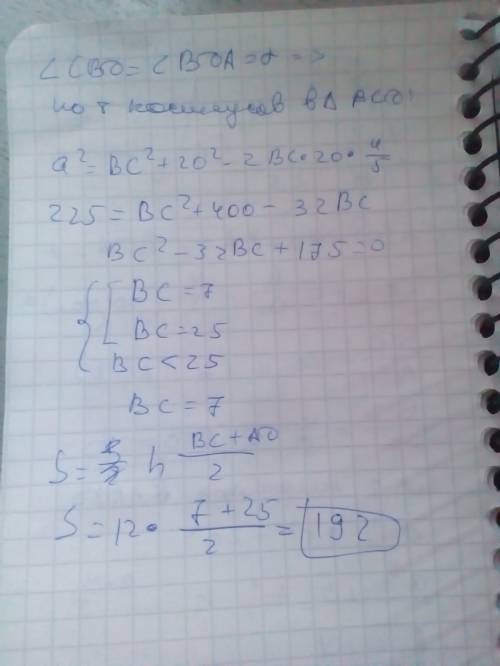 ∠CBD = ∠BDA = α =>
по т косинусов в Δ ACD:
a² = BC² + 20² - 2BC·20·4/5
225 = BC² + 400 - 32BC
BC² - 32BC + 175 = 0
{ [ BC = 7
BC = 25
BC < 25
BC = 7
S = h (BC + AD)/2
S = 12· (7 + 25)/2 = 192